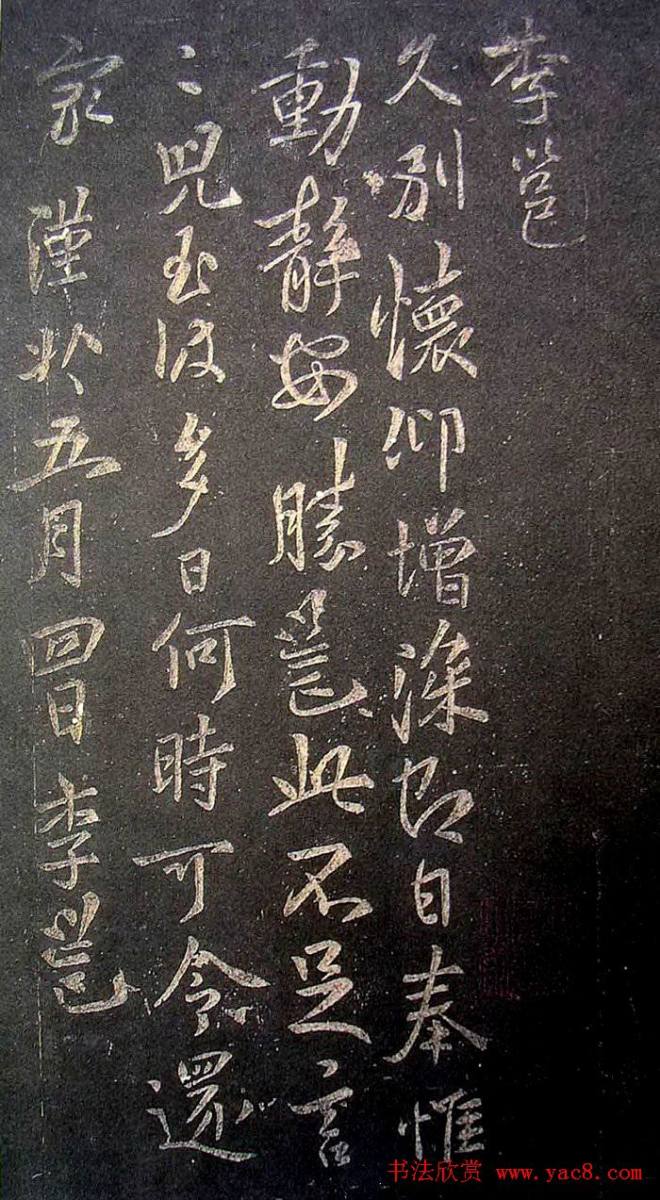 李邕
久別懷仰增深即日奉惟
動靜安勝邕此不足言
二兒至彼多日何時可令還
家謹狀五月四日李邕
书法欣赏 www.yac8.com